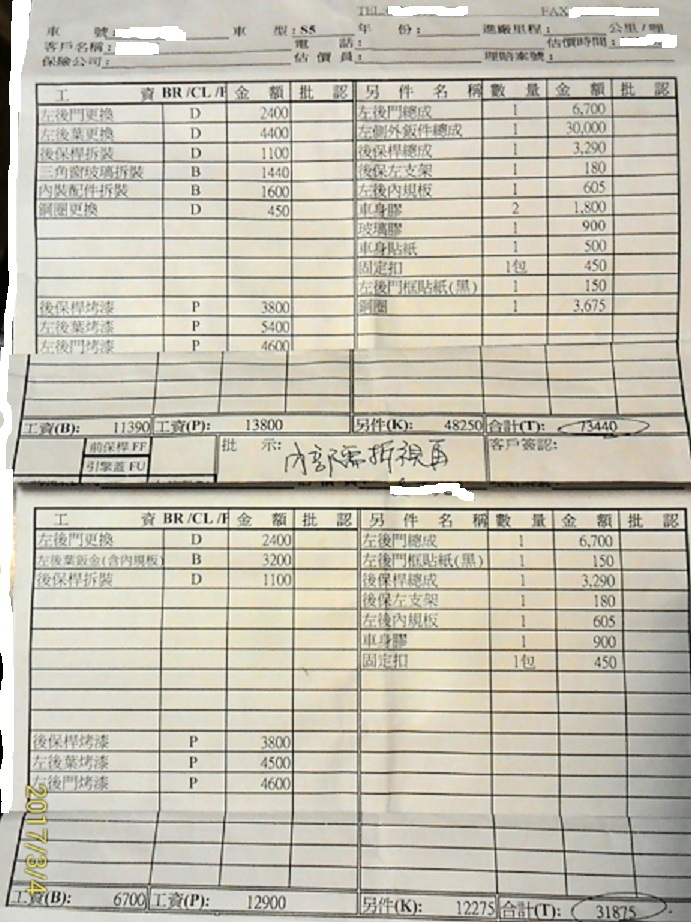 TEL: FAX
車 號: 車 型: S5 年 份: 進廠里程: 公里/哩
客戶名稱: 電 話: 估價時間:
保險公司: 估 價 員: 理賠案號:
工 資 BR /CL /F 金 額 批 認 另 件 名 稱 數 量 金 額 批 認
左後門更換 D 2400 左後門總成 1 6,700
左後葉更換 D 4400 左側外鈑件總成 1 30,000
後保桿拆裝 D 1100 後保桿總成 1 3,290
三角窗玻璃拆裝 B 1440 後保左支架 1 180
內裝配件拆裝 B 1600 左後內規板 1 605
鋼圈更換 D 450 車身膠 2 1,800
玻璃膠 1 900
車身貼紙 1 500
固定扣 1包 450
左後門框貼紙(黑) 1 150
後保桿烤漆 P 3800 鋼圈 1 3,675
左後葉烤漆 P 5400
左後門烤漆 P 4600
工資(B): 11390 工資(P): 13800 另件(K): 48250 合計(T): 73440
前保桿 FF 批 示: 內部需拆視再 客戶簽認:
引擎蓋 FU
工 資 BR /CL /F 金 額 批 認 另 件 名 稱 數 量 金 額 批 認
左後門更換 D 2400 左後門總成 1 6,700
左後葉鈑金(含內規板) B 3200 左後門框貼紙(黑) 1 150
後保桿拆裝 D 1100 後保桿總成 1 3,290
後保左支架 1 180
左後內規板 1 605
車身膠 1 900
固定扣 1包 450
後保桿烤漆 P 3800
左後葉烤漆 P 4500
左後門烤漆 P 4600
工資(B): 6700 工資(P): 12900 另件(K): 12275 合計(T): 31875
2017/3/4